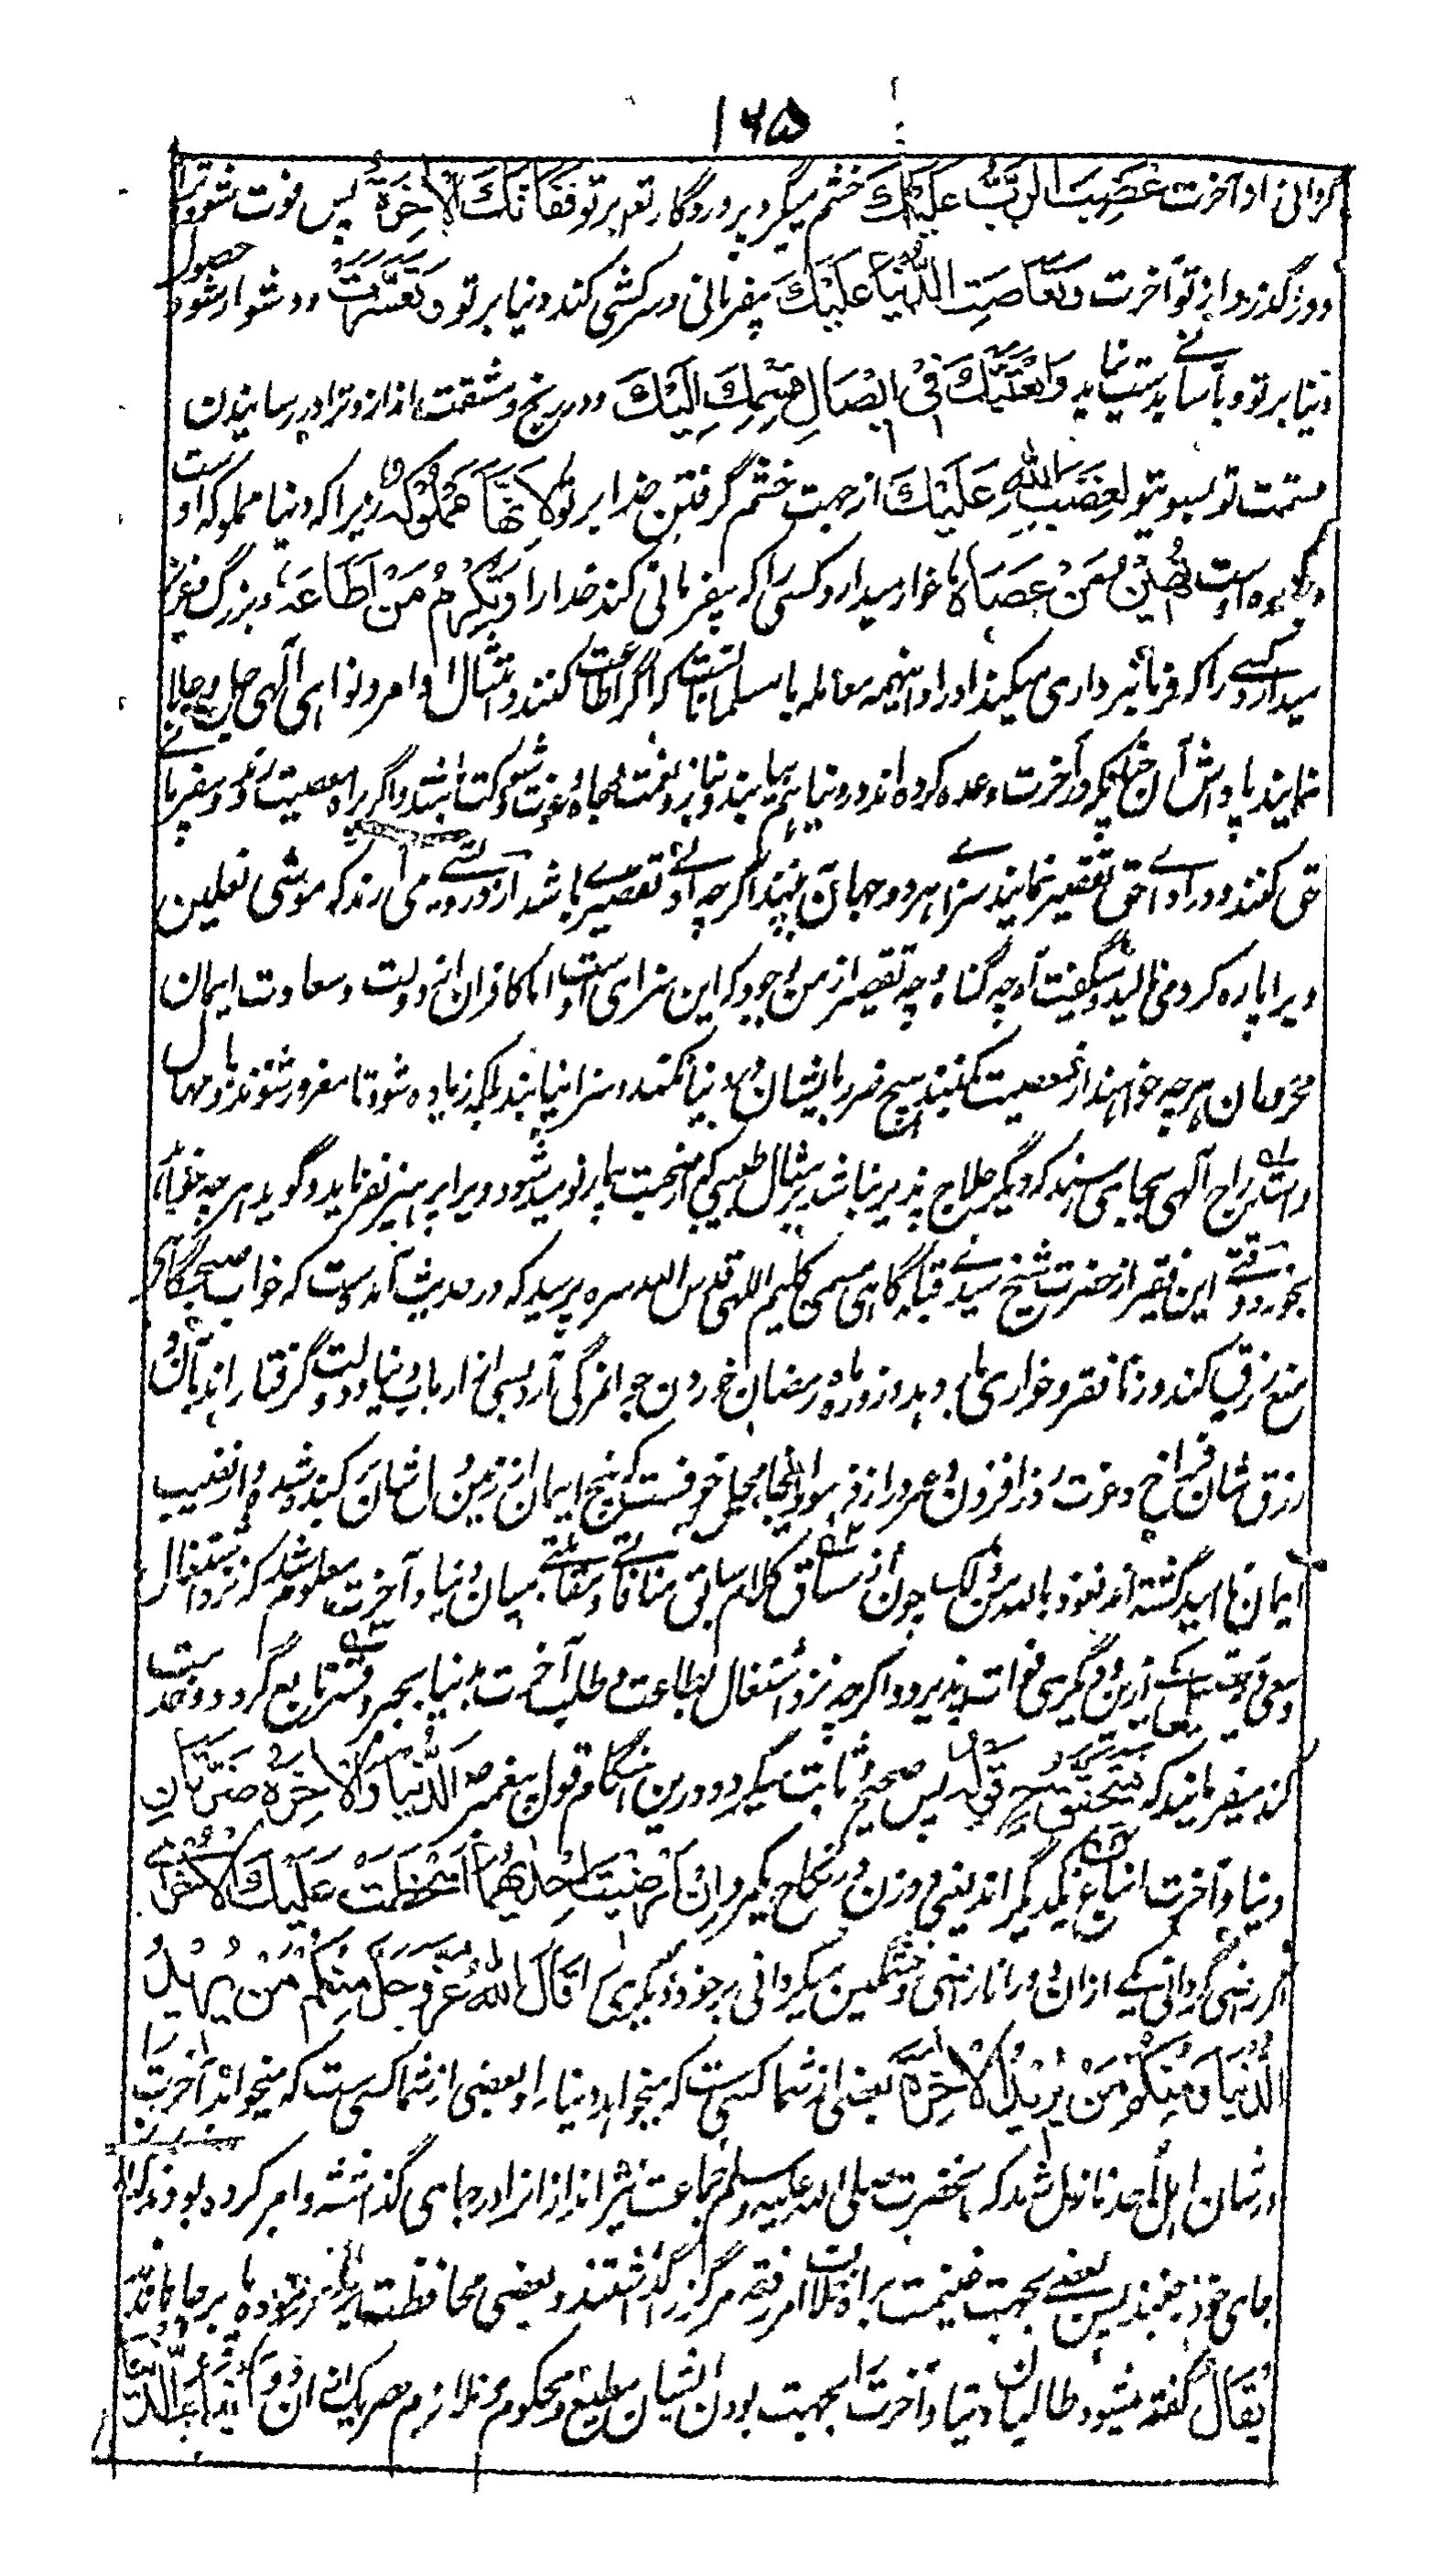 ۱۶۵
گردانی از آخرت غَضِبَ الرَّبُّ عَلَيْكَ خشم میگیرد پروردگار تعہ بر تو فَفَاتَكَ الْاٰخِرَةُ پس فوت شود ترا
و درگذرد از تو آخرت وَتَعَاصَتِ الدُّنْيَا عَلَيْكَ بیفرمانی و سرکشی کند دنیا بر تو وَتَعَسَّرَتْ و دشوار شود حصول
دنیا بر تو و بآسانے بدست نیاید وَاَتْعَبَتْكَ فِيْ اِيْصَالِ قِسْمِكَ اِلَيْكَ و در رنج و مشقت اندازد ترا در رسانیدن
قسمت تو بسوی تو لِغَضَبِ اللّٰهِ عَلَيْكَ از جهت خشم گرفتن خدا بر تو لِاَنَّهَا مَمْلُوْكَةٌ زیرا که دنیا مملوکه اوست
تُهِيْنُ مَنْ عَصَاهُ خوار میدارد کسی را که بیفرمانی کند خدا را وَتُكْرِمُ مَنْ اَطَاعَهُ و بزرگ و عزیز
میدارد کسے را که فرمانبرداری میکند او را و اینهمه معامله با مسلمانانست که اگر اطاعت کنند و امتثال اوامر و نواهی الٰهی
نمایند پاداش آن چنانکه در آخرت وعده کرده اند در دنیا هم بیابند و بناز و نعمت و جاه و عزت و شوکت باشند و اگر براه معصیت روند و بیفرمانے
حق کنند و در اداے حق تقصیر نمایند سزاے هر دو جهان بینند اگرچه ادنے تقصیرے باشد آورده اند که موشی نعلین
ویرا پاره کرد می نالید و میگفت آه چه گناه و چه تقصیر از من بوجود که این سزای اوست اما کافران از دولت و سعادت ایمان
محرومان هرچه خواهند از معصیت کنند هیچ ضرر بایشان در دنیا نکند و سزا نیابند بلکه زیاده شود تا مغرور شوند و مهال
و استدراج الٰهی بجایی رسند که دیگر علاج پذیر نباشد بر مثال طبیبی که از صحت بیمار نومید شود و ویرا پرهیز نفرماید و گوید هرچه خواهد
بخورد وقتے این فقیر از حضرت شیخ سیدے قبله گاهی مسمی کلیم اللهی قدس الله سره پرسید که در حدیث آمده است که خواب صبحگاهی
منع رزق کند و زنا فقر و خواری بار دهد و روزه ماه رمضان خوردن جوانمرگی آرد بسی از ارباب دنیا و دولت گرفتار اند بآن و
رزق شان فراخ و عزت روز افزون و عمر دراز فرمود اینجا محل خوفست که بیخ ایمان از زمین دل شان کنده شد و از نصیب
ایمان ناامید گشته اند نعوذ بالله من ذلک چون از مساق کلام سابق منافات و مقابلتے میان دنیا و آخرت معلوم شد که نزد اشتغال
و سعی در تحصیل یکے ازین دو دیگری فوات پذیرد و اگرچه نزد اشتغال بطاعت و طلب آخرت دنیا
کند میفرمایند که فَتَحَقَّقَ صِحَّةُ قَوْلِهِ پس صحیح و ثابت میگردد درین هنگام قول پیغمبر صہ اَلدُّنْيَا وَالْاٰخِرَةُ ضَرَّتَانِ
دنیا و آخرت انباغ یکدیگر اند یعنی دو زن در نکاح یکمرد اِنْ اَرْضَيْتَ اِحْدٰيهُمَا اَسْخَطَتْ عَلَيْكَ الْاُخْرٰى
اگر راضی گردانی یکے ازان دو را ناراضی و خشمگین میگردانی بر خود دیگری را قَالَ اللّٰهُ عَزَّ وَجَلَّ مِنْكُمْ مَنْ يُرِيْدُ
الدُّنْيَا وَمِنْكُمْ مَنْ يُرِيْدُ الْاٰخِرَةَ بعضی از شما کسی ست که میخواهد دنیا را و بعضی از شما کسی ست که میخواهد آخرت را
در شان اهل اُحد نازل شد که آنحضرت صلی الله علیه وسلم جماعت تیراندازان را در جای گذاشته و امر کرده بودند که از
جای خود نجنبند پس بعضے بجهت غنیمت برآوردن خلاف امر نموده مرکز را گذاشتند و بعضی محافظت امر نموده بر جا ماندند
يُقَالُ گفته میشود طالبان دنیا و آخرت را بجهت بودن ایشان مطیع و محکوم و ملازم هر یک ازان دو اَبْنَاءُ الدُّنْيَا